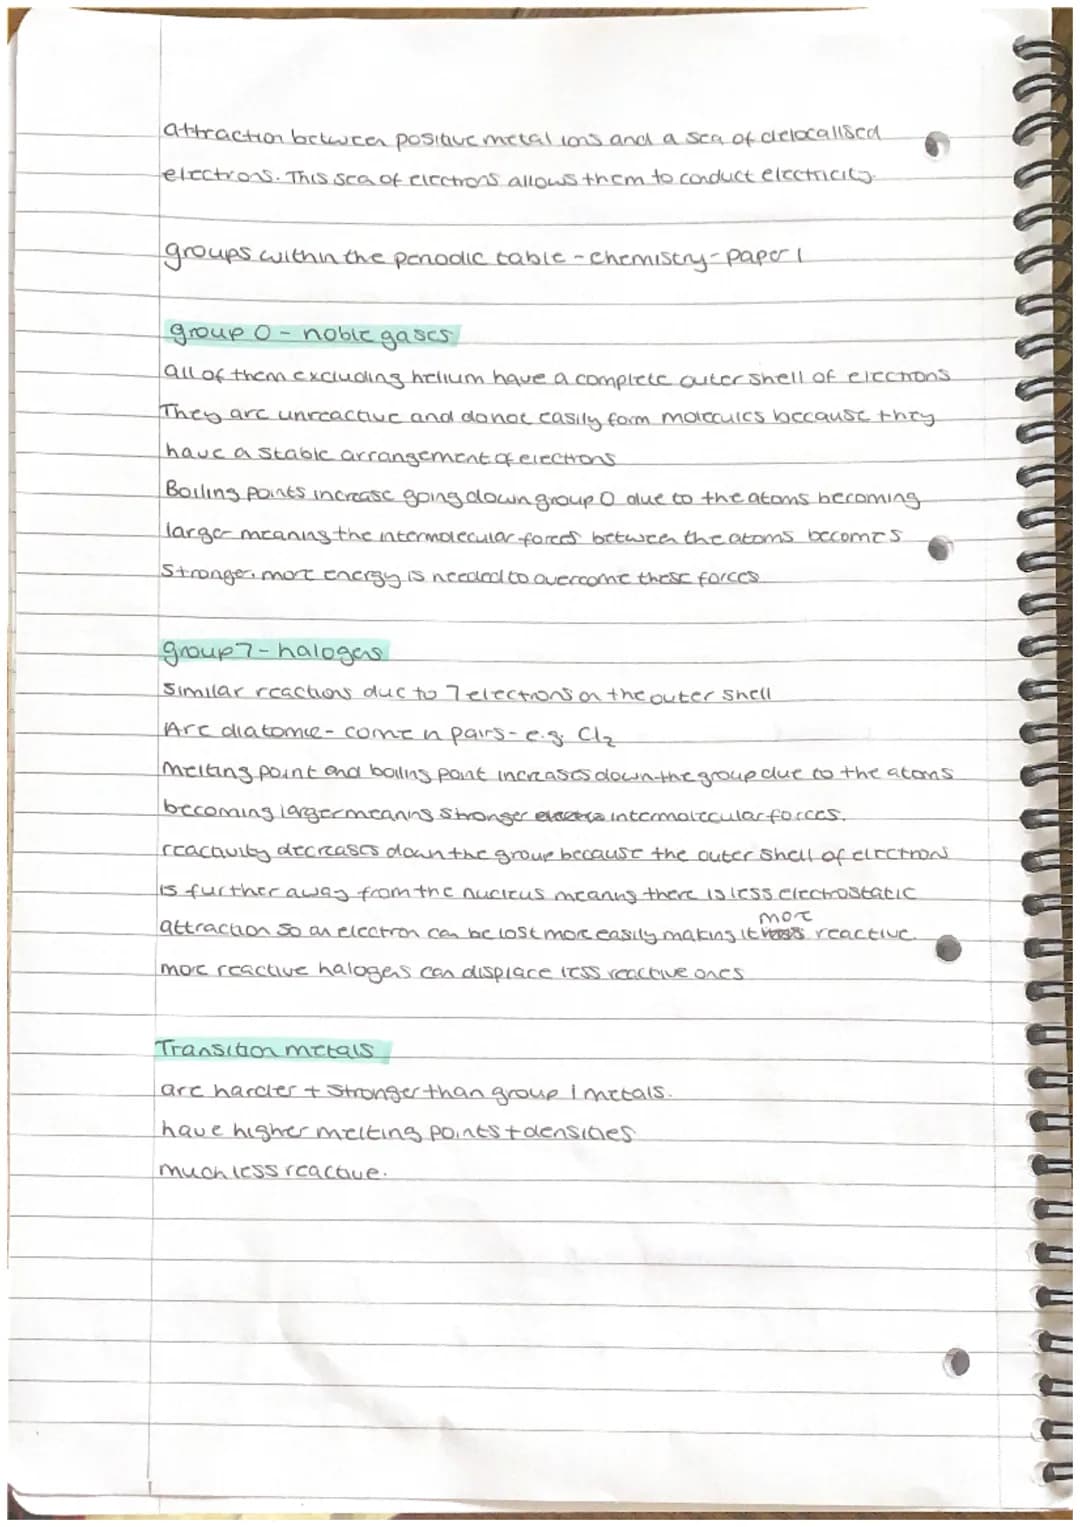 attraction between positive metal ions and a sea of delocalised
electrons. This sea of electrons allows them to conduct electricity.
groups within the periodic table - chemistry - paper 1
group 0 - noble gases
all of them excluding helium have a complete outer shell of electrons
They are unreactive and do not easily form molecules because they
have a stable arrangement of electrons
Boiling points increase going down group 0 due to the atoms becoming
larger meaning the intermolecular forces between the atoms becomes
stronger. more energy is needed to overcome these forces
group 7 - halogens
similar reactions due to 7 electrons on the outer shell
Are diatomic - come in pairs - e.g. Cl2
melting point and boiling point increases down the group due to the atoms
becoming larger meaning stronger intermolecular forces.
reactivity decreases down the group because the outer shell of electrons
is further away from the nucleus meaning there is less electrostatic
attraction so an electron can be lost more easily making it more reactive.
more reactive halogens can displace less reactive ones
Transition metals
are harder + stronger than group 1 metals.
have higher melting points + densities
much less reactive.